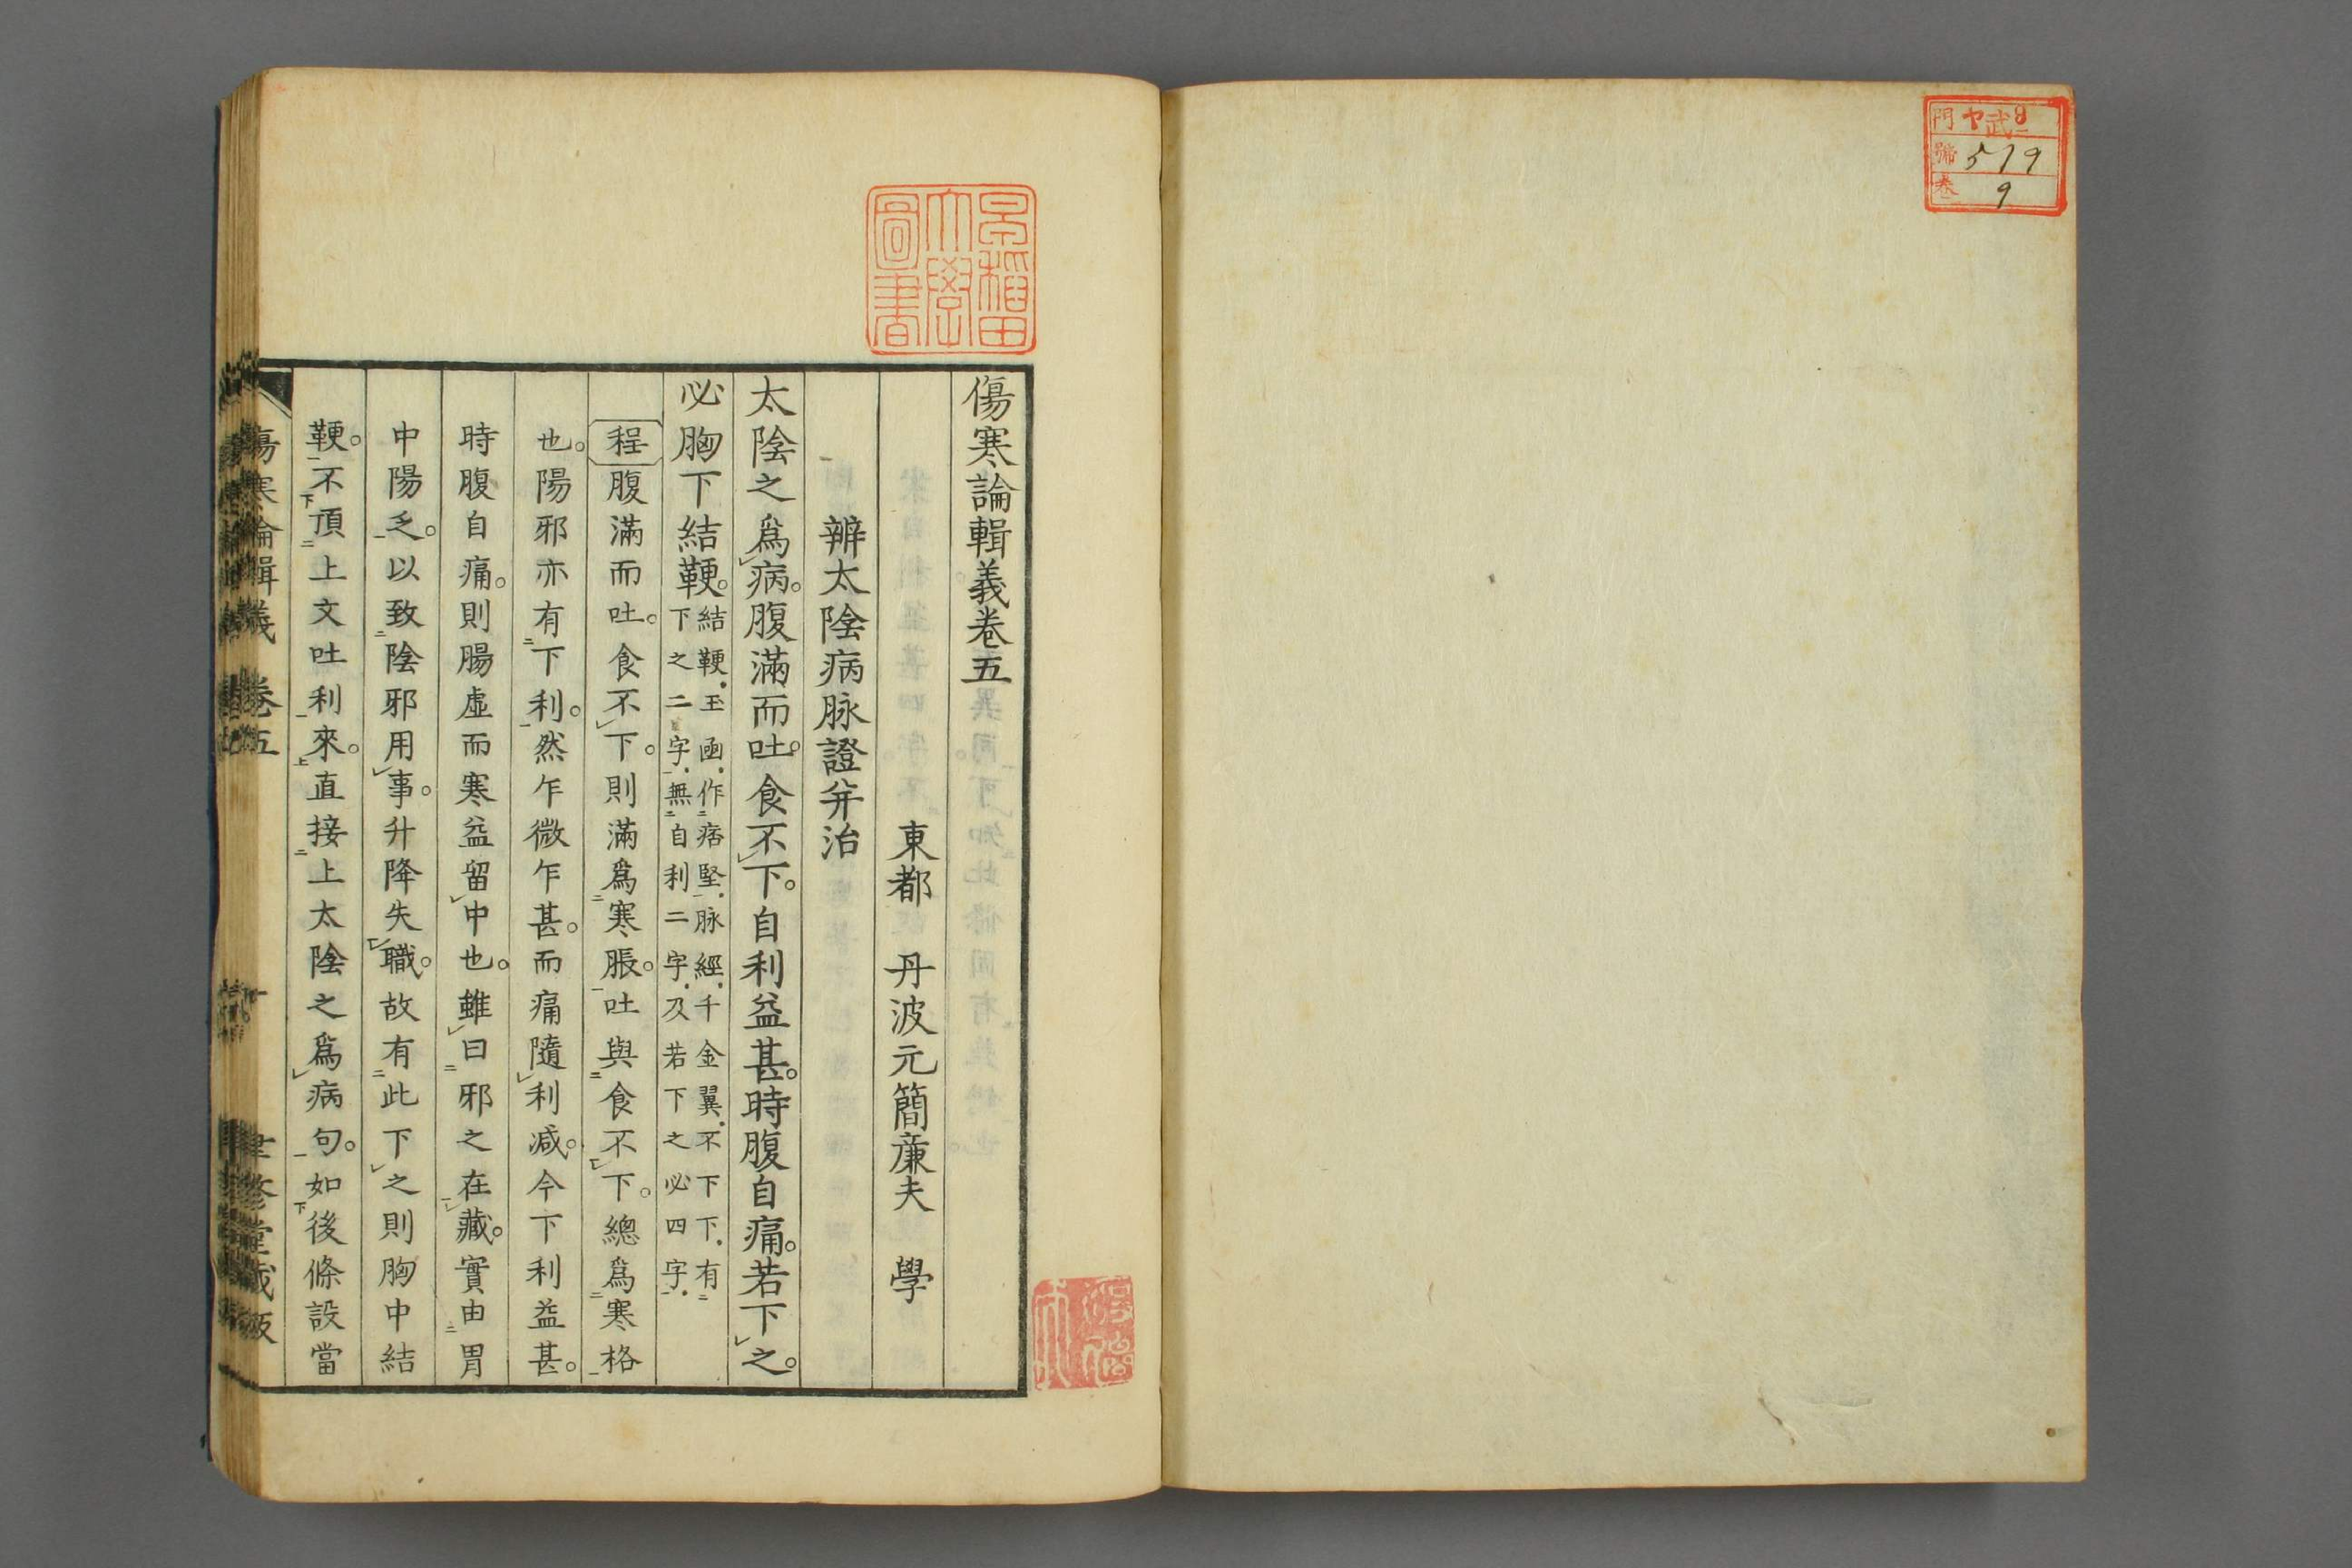 門 ヤ武9
號 579
卷 9
早稲田大學圖書
傷寒論輯義卷五
東都 丹波元簡廉夫 學
辨太陰病脉證并治
太陰之爲病。腹滿而吐。食不下。自利益甚。時腹自痛。若下之。
必胸下結鞕。結鞕。玉函。作痞堅。脉經。千金翼。不下下。有
下之二字。無自利二字。及若下之必四字。
程腹滿而吐。食不下。則滿爲寒脹。吐與食不下。總爲寒格
也。陽邪亦有下利。然乍微乍甚。而痛隨利減。今下利益甚。
時腹自痛。則腸虛而寒益留中也。雖曰邪之在藏。實由胃
中陽乏。以致陰邪用事。升降失職。故有此下之則胸中結
鞕。不頂上文吐利來。直接上太陰之爲病句。如後條設當
傷寒論輯義 卷五 一 聿修堂藏版